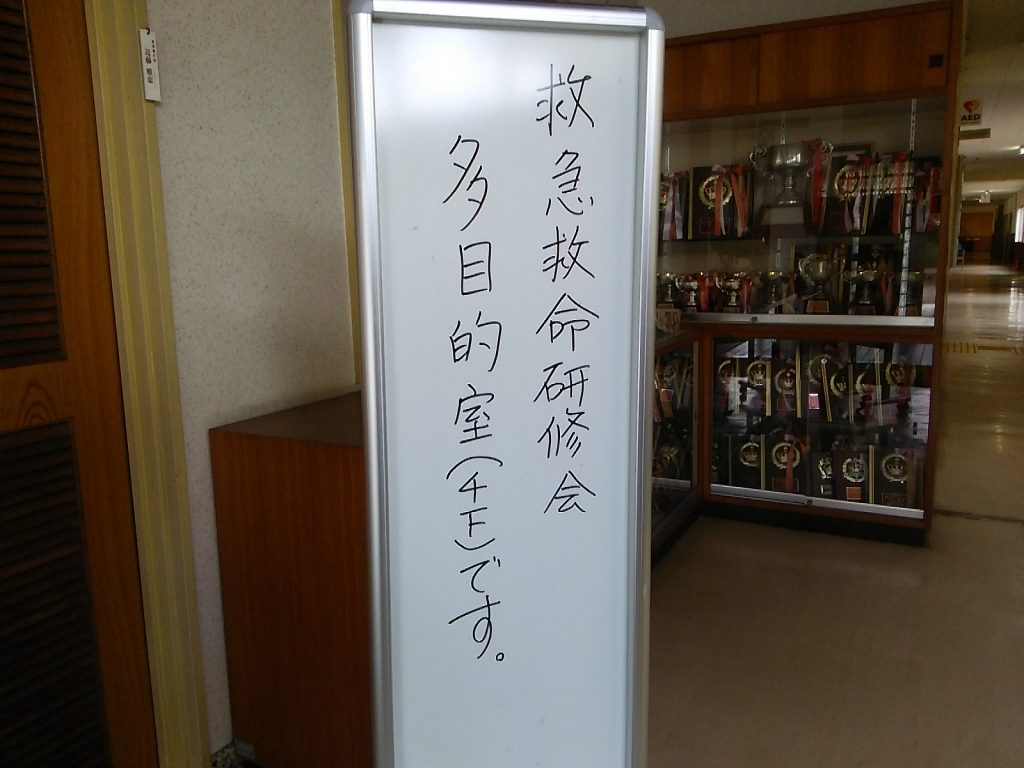 救急救命研修会
多目的室(4F)です。
AED